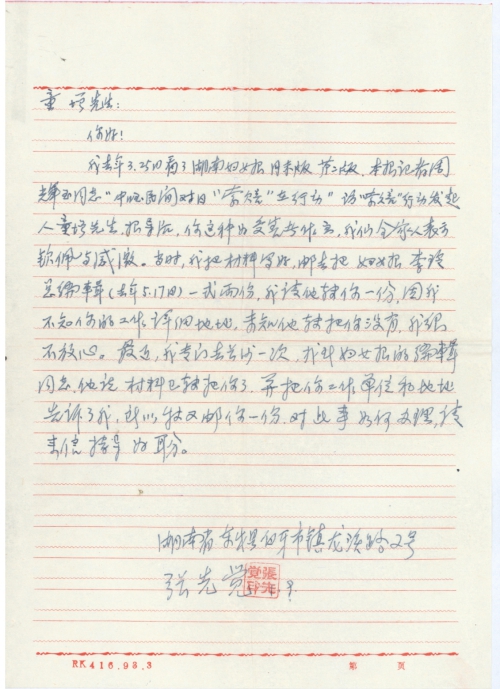 童增先生：
你好！
我去年3.25日看了湖南妇女报周末版第二版，本报记者周
同志"中国民间对日"索赔"在行动"该"索赔"行动发起
人童增先生，报导后，你这种为受害者作主，我们全家人表示
钦佩与感激。当时，我把材料写好，邮去把妇女报李
总编辑（去年5.17日）一式两份，我请他转你一份，因我
不知你的工作详细地址，未知他转把你没有，我很
不放心。最近，我专门去长沙一次，我找妇女报的编辑
同志，他说材料已转把你了，并把你工作单位和地址
告诉了我，所以我又邮你一份，对此事如何办理，请
来信指导为盼。
湖南省县市镇龙路2号
张先觉
張先覺
RK416.93.3
第 页